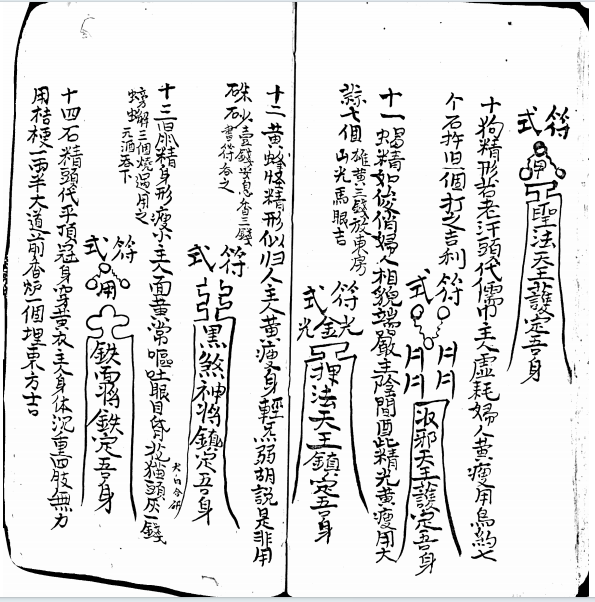 符式
聖法天王護定吾身
十狗精形若老汗頭代儒巾主人虛耗婦人黃瘦用烏約七
个石杵旧一個打之吉利
符式
邪天王護定吾身
十一 蝎精如俊俏婦人相貌端嚴主陰間 此精光黃瘦用大
蒜七個 雄黃三錢放東房
山光馬眼吉
符式
光金光
押法天王鎮定吾身
十二黃蜂怪精形似归人主人黃瘦身輕 弱胡說是非用
硃砂壹錢 香三錢
書符吞之
符式
黑煞神將鎮定吾身
十三 精身形瘦小主人面黃常嘔吐眼目昏花猫頭灰一錢
螃蠏三個燒過用之
元酒吞下
犬白合研
符式
用
鉄面將鉄定吾身
十四石精頭代平頂冠身穿黃衣主人身体沉重四肢無力
用桔梗一兩半大道前香炉一個埋東方吉